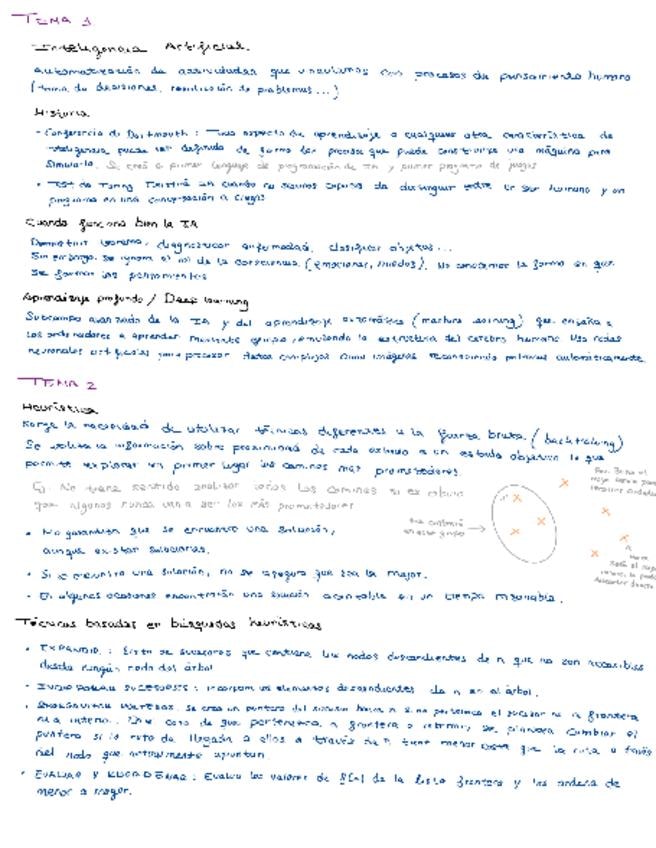 TEMA 1
Inteligencia Artificial.
Automatización de actividades que vinculamos con procesos de pensamiento humano
(toma de decisiones, resolución de problemas...)
Historia
- Conferencia de Dartmouth: Todo aspecto de aprendizaje o cualquier otra característica de
inteligencia puede ser definido de forma tan precisa que puede construirse una máquina para
simularlo. Se creó el primer lenguaje de programación de IA y primer programa de juegos
• Test de Turing Existirá IA cuando no seamos capaces de distinguir entre un ser humano y un
programa en una conversación a ciegas
Cuando funciona bien la IA
Demostrar teoremas, diagnosticar enfermedad, clasificar objetos...
Sin embargo, se ignora el rol de la consciencia (emociones, miedos). No conocemos la forma en que
se forman los pensamientos
Aprendizaje profundo / Deep learning
Subcampo avanzado de la IA y del aprendizaje automático (machine learning) que enseña a
los ordenadores a aprender mediante emulando la estructura del cerebro humano. Usa redes
neuronales artificiales para procesar datos complejos como imágenes reconociendo patrones automáticamente
TEMA 2
Heurística
Surge la necesidad de utilizar técnicas diferentes a la fuerza bruta (backtracking)
Se utiliza la información sobre proximidad de cada estado a un estado objetivo lo que
permite explorar en primer lugar los caminos más prometedores.
Ej: No tiene sentido analizar todos los caminos si es obvio
que algunos nunca van a ser los más prometedores
en este grupo
• No garantiza que se encuentre una solución,
aunque existan soluciones.
• Si se encuentra una solución, no se asegura que sea la mejor.
• En algunas ocasiones encontrarán una solución aceptable en un tiempo razonable.
Técnicas basadas en búsquedas heurísticas
• EXPANDIR: Lista de sucesores que contiene los nodos descendientes de n que no son accesibles
desde ningún nodo del árbol
• INCORPORAR SUCESORES: incorporan los elementos descendientes de n en el árbol.
• se crea un puntero del sucesor hacia n si no pertenece el sucesor ni a frontera
ni a interna. En caso de que pertenezca a frontera o interna, se planteará cambiar el
puntero si la ruta de llegada a ellos a través de n tiene menor coste que la ruta a través
del nodo que actualmente apuntan.
• EVALUAR Y REORDENAR: Evalua los valores de f(n) de la lista frontera y los ordena de
menor a mayor.